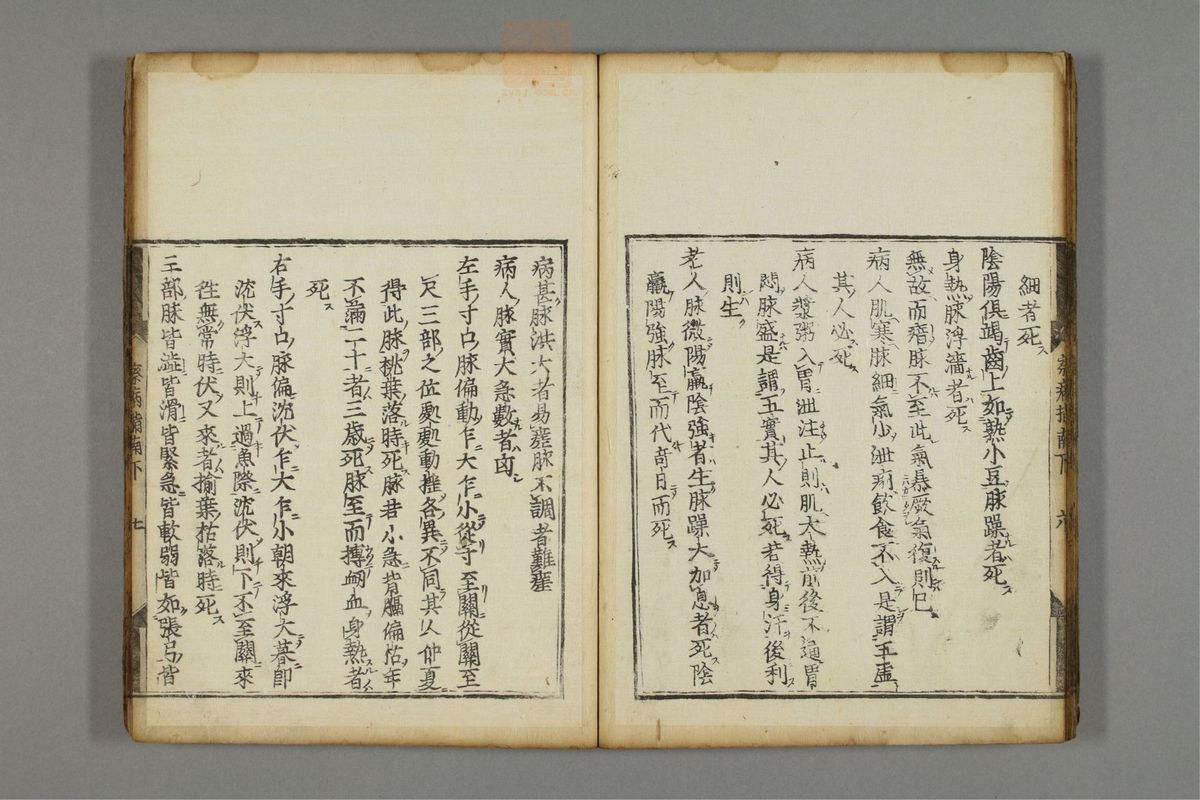 細者死
陰陽俱竭齒上如熟小豆脉躁者死
身熱脉浮濇者死
無故而瘖脉不至此氣暴厥氣復則已
病人肌寒脉細氣少泄痢飲食不入是謂五虛
其人必死
病人漿粥入胃泄注止則肌大熱前後不通胃
悶脉盛是謂五實其人必死若得身汗後利
則生
老人脉微陽羸陰強者生脉躁大加息者死陰
羸陽強脉至而代奇日而死
察病指南下 六
病甚脉洪大者易瘥脉不調者難瘥
病人脉實大急數者凶
左手寸口脉偏動乍大乍小從寸至關從關至
尺三部之位處處動搖各異不同其人仲夏
得此脉桃葉落時死脉若小急背膈偏枯年
不滿二十者三歲死脉至而搏衂血身熱者
死
右手寸口脉偏沈伏乍大乍小朝來浮大暮即
沈伏浮大則上過魚際沈伏則下不至關來
徃無常時伏又來者揄葉枯落時死
三部脉皆澁皆滑皆緊急皆軟弱皆如張弓皆
察病指南下 七